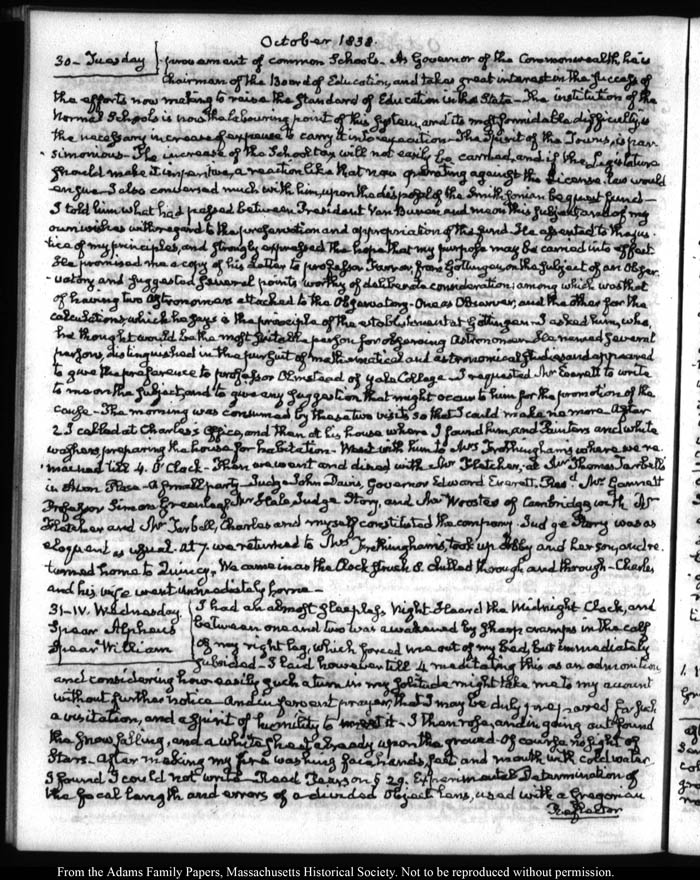 October 1838.
30- Tuesday } provement of common Schools- As Governor of the Commonwealth, he is
Chairman of the Board of Education, and takes great interest in the success of
the efforts now making to raise the standard of Education in the State- The institution of the
Normal Schools is now the labouring point of this System, and its most formidable difficulty is
the necessary increase of expence to carry it into execution- The Spirit of the Towns, is par-
simonious- The increase of the School tax will not easily be carried, and if the Legislature
should make it imperative, a reaction like that now operating against the License law would
ensue- I also conversed much with him, upon the disposal of the Smithsonian bequest fund-
I told him what had passed between President Van Buren and me on this subject, and of my
own wishes with regard to the preservation and appropriation of the fund- He assented to the jus-
tice of my principles, and strongly expressed the hope that my purpose may be carried into effect
He promised me a copy of his Letter to professor Farrar from Gottingen on the subject of an Obser-
vatory and suggested several points worthy of deliberate consideration; among which was that
of having two Astronomers attached to the Observatory- One as Observer, and the other for the
calculations, which he says is the principle of the establishment at Gottingen- I asked him, who,
he thought would be the most suitable person for observing Astronomer- He named several
persons, distinguished in the pursuit of mathematical and astronomical studies and appeared
to give the preference to professor Olmstead of Yale College- I requested Mr Everett to write
to me on the subject, and to give any suggestion that might occur to him for the promotion of the
cause- The morning was consumed by these two visits, so that I could make no more. After
2 I called at Charles's Office, and then at his house where I found him, and Painters and white
washers, preparing the house for habitation- Went with him to Mrs Frothingham's where we re-
mained till 4. O'Clock- Then we went and dined with Mr Fletcher, at Mr Thomas Tarbell's
in Avon Place- a small party- Judge John Davis, Governor Edward Everett, Mr Gannett
Professor Simon Greenleaf, Mr Hale, Judge Story, and Mr Worster of Cambridge, with Mr
Fletcher and Mr Tarbell, Charles and myself constituted the company. Judge Story was as
eloquent as usual. At 7. we returned to Mrs Frothingham's, took up Abby and her son, and re-
turned home to Quincy. We came in as the Clock struck 8. chilled through and through- Charles
and his wife went immediately home-
31- IV. Wednesday } I had an almost sleepless Night. Heard the Midnight Clock, and
Spear Alpheus between one and two was awakened by sharp cramps in the calf
Spear William of my right leg, which forced me out of my bed, but immediately
subsided- I laid however till 4 meditating this as an admonition
and considering how easily such a turn in my solitude might take me to my account
without further notice- And in fervent prayer, that I may be duly prepared for such
a visitation, and a spirit of humility to meet it- I then rose, and in going out found
the snow falling, and a white sheet already upon the ground- Of course no sight of
Stars- After making my fire washing face hands, feet and mouth with cold water
I found I could not write- Read Pearson § 29. Experimental Determination of
the focal length and errors of a divided Object lens, used with a Gregorian
Reflector
From the Adams Family Papers, Massachusetts Historical Society. Not to be reproduced without permission.